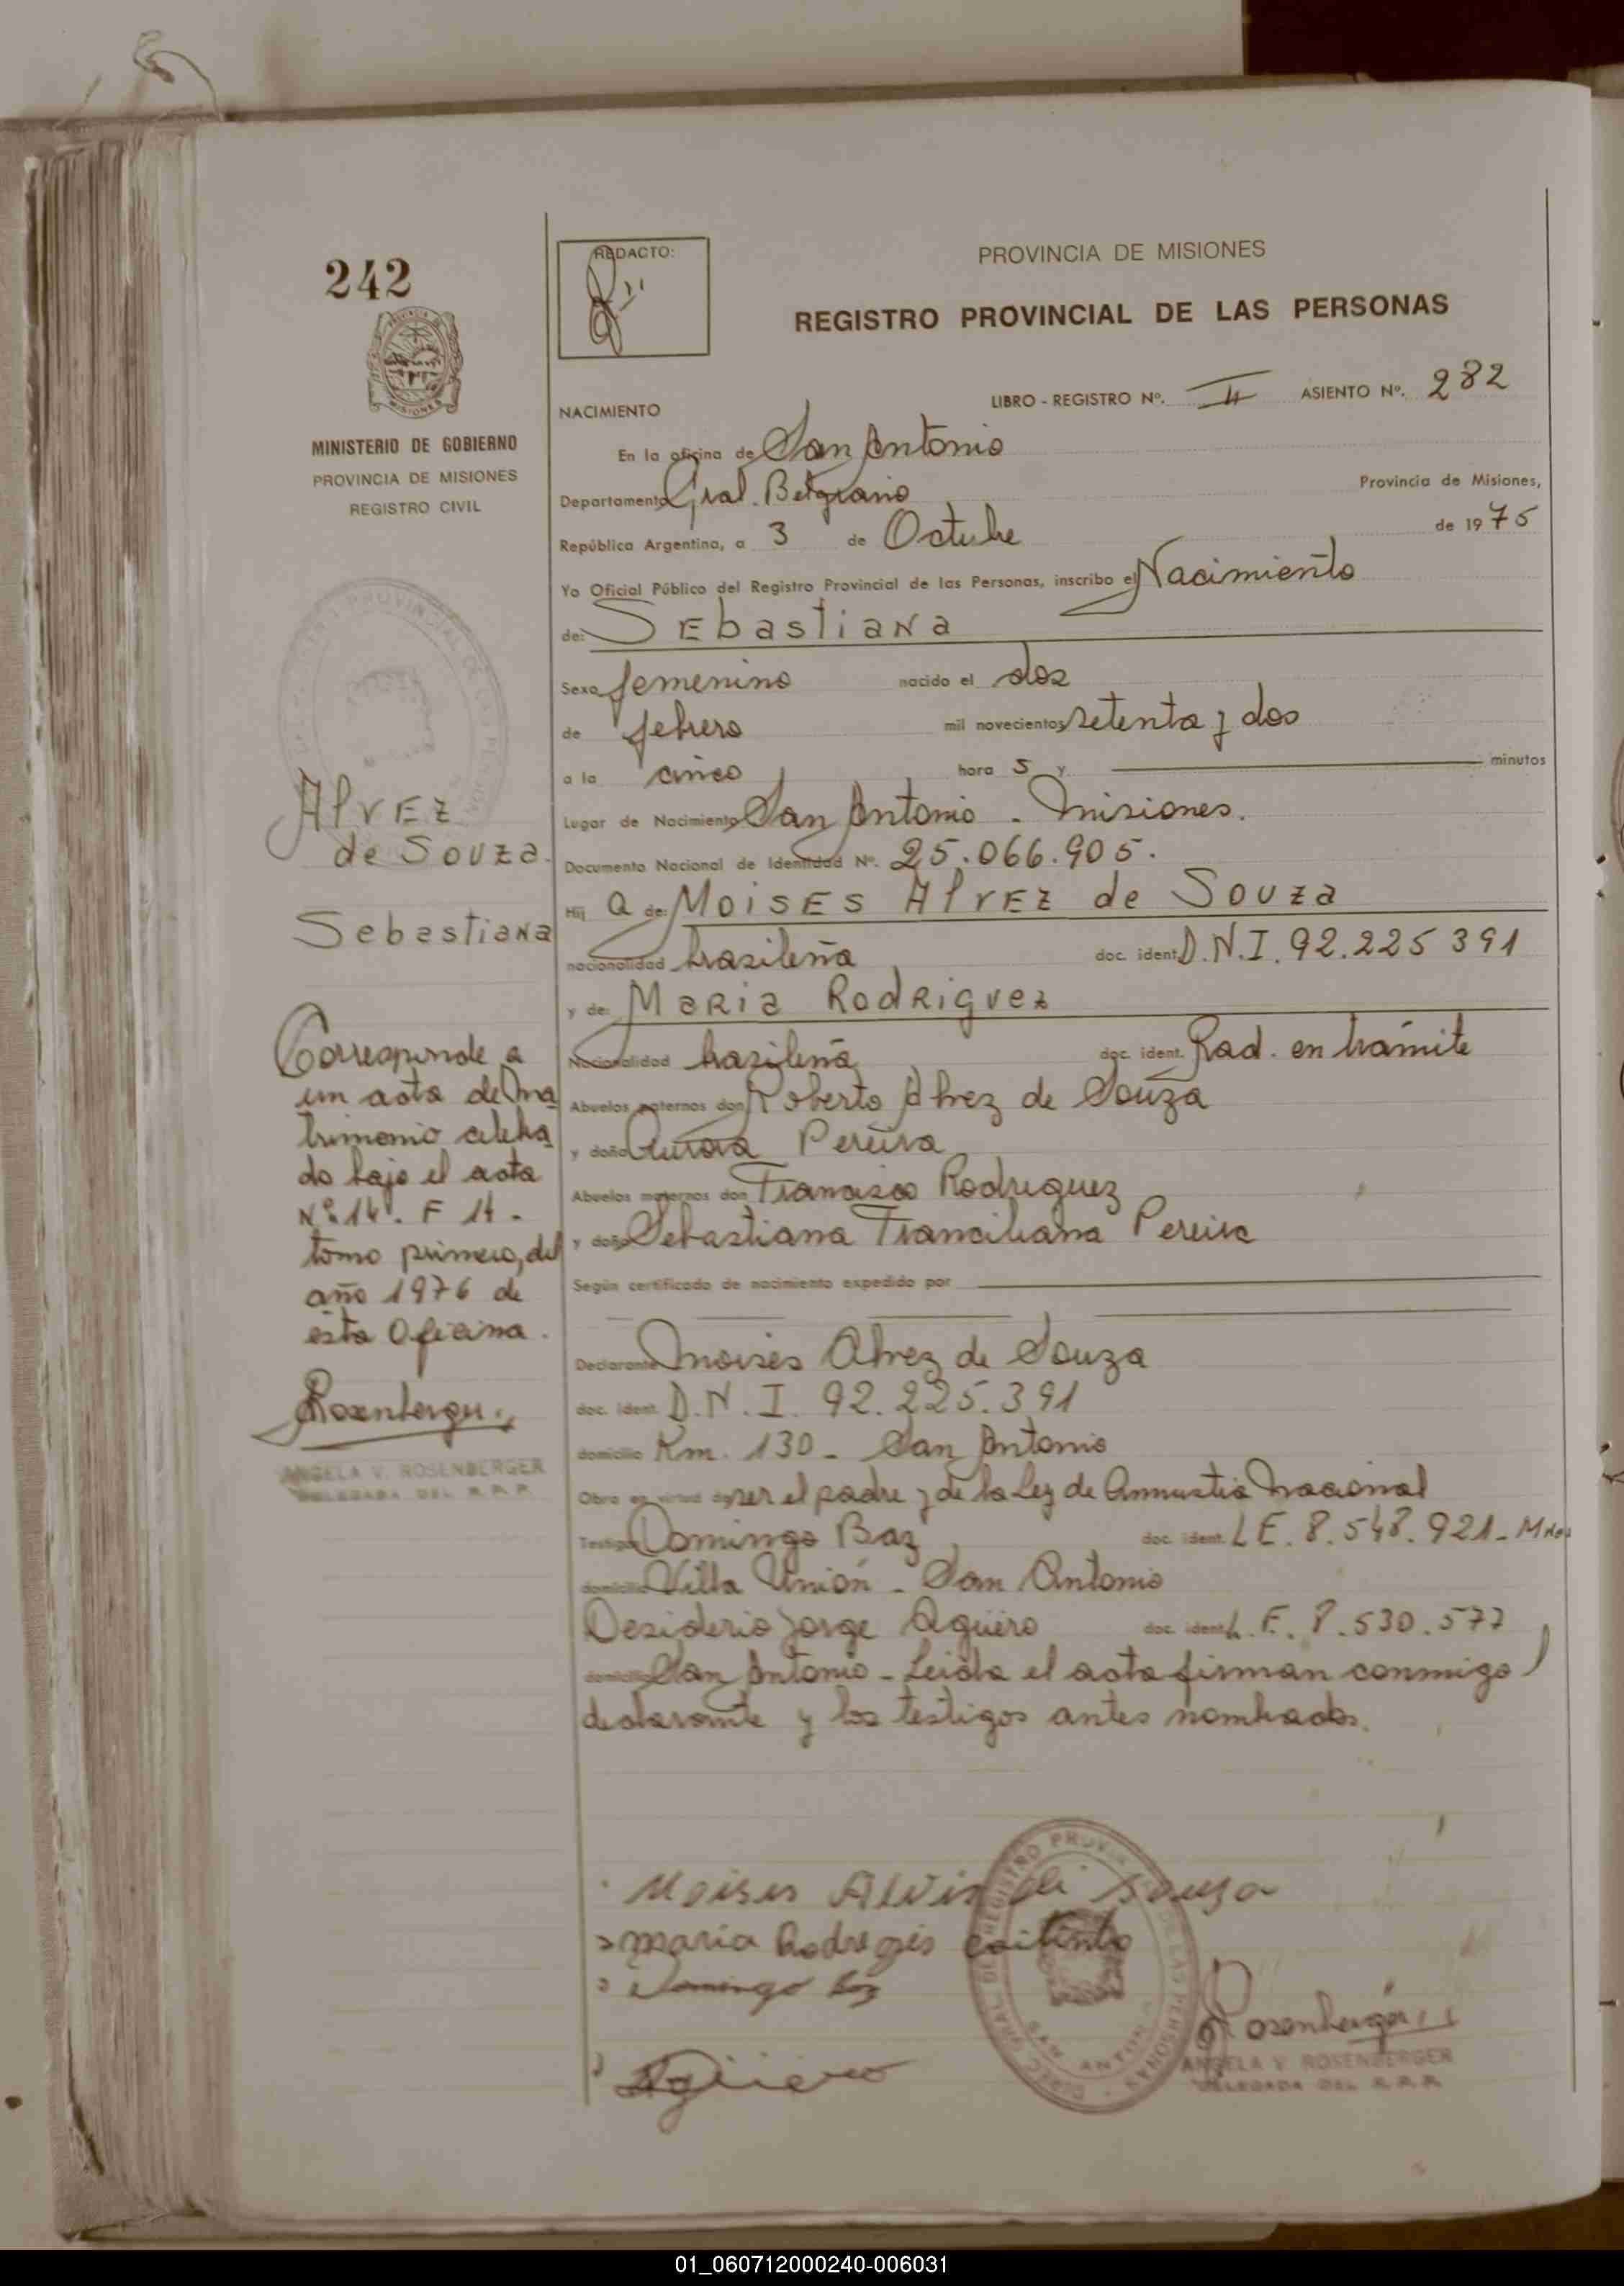 242
MINISTERIO DE GOBIERNO
PROVINCIA DE MISIONES
REGISTRO CIVIL
Alvez
de Souza.
Sebastiana
Corresponde a
un acta de ma
trimonio celebra
do bajo el acta
Nº 14. F 14.
tomo primero, del
año 1976 de
esta Oficina.
Rosenberger
ANGELA V. ROSENBERGER
DELEGADA DEL R.P.P.
REDACTO:
PROVINCIA DE MISIONES
REGISTRO PROVINCIAL DE LAS PERSONAS
LIBRO - REGISTRO Nº. II ASIENTO Nº. 282
NACIMIENTO
En la oficina de San Antonio
Departamento Gral. Belgrano Provincia de Misiones,
República Argentina, a 3 de Octubre de 1975
Yo Oficial Público del Registro Provincial de las Personas, inscribo el Nacimiento
de: Sebastiana
Sexo femenino nacido el dos
de febrero mil novecientos setenta y dos
a la cinco hora 5 y minutos
Lugar de Nacimiento San Antonio - Misiones.
Documento Nacional de Identidad Nº. 25.066.905.
Hij a de: Moises Alvez de Souza
nacionalidad brasileña doc. ident. D.N.I. 92.225 391
y de: Maria Rodriguez
Nacionalidad brasileña doc. ident. Rad. en trámite
Abuelos paternos don Roberto Alvez de Souza
y doña Aurora Pereira
Abuelos maternos don Francisco Rodriguez
y doña Sebastiana Franciliana Pereira
Según certificado de nacimiento expedido por
Declarante Moisés Alvez de Souza
doc. ident. D.N.I. 92.225.391
domicilio Km. 130 - San Antonio
Obra en virtud de ser el padre y de la Ley de Amnistia Nacional
Testigos Domingo Baz doc. ident. L E. 8.548.921 - Mnes
domicilio Villa Unión - San Antonio
Desiderio Jorge Agüero doc. ident. L.E. 8.530.577
domicilio San Antonio - Leida el acta firman conmigo
declarante y los testigos antes nombrados.
Moises Alvis de Souza
maria Rodregis
Domingo Baz
Agüero
DIREC. GRAL. DE REGISTRO PROVINCIAL DE LAS PERSONAS
SAN ANTONIO
Rosenberger
ANGELA V. ROSENBERGER
DELEGADA DEL R.P.P.
01_060712000240-006031